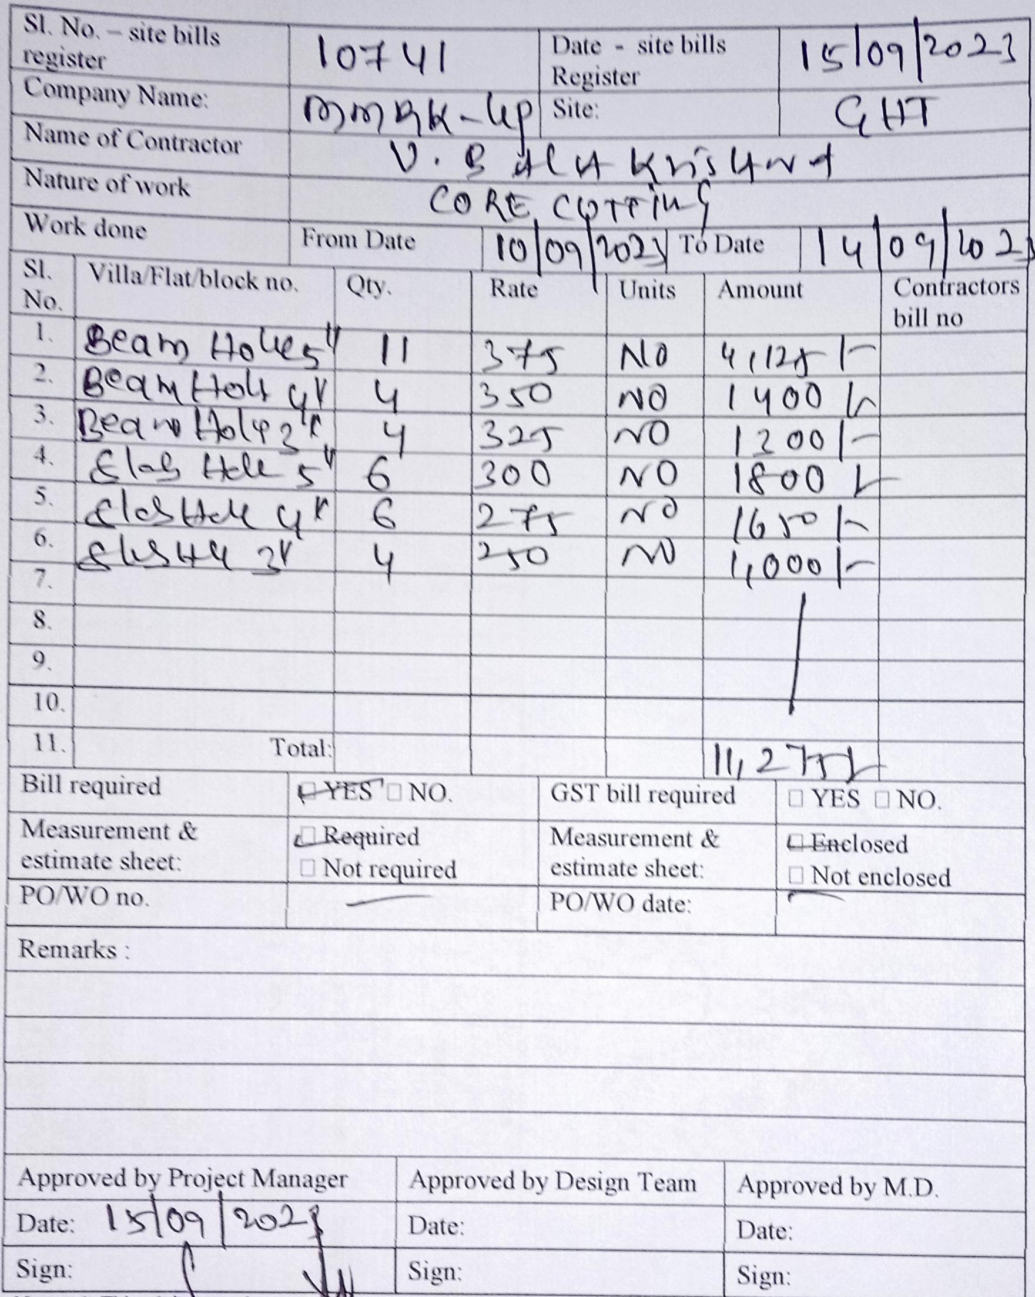 Sl. No. – site bills register 10741 Date - site bills Register 15/09/2023
Company Name: Site: GHT
Name of Contractor V. BALA Krishna
Nature of work CORE CUTTING
Work done From Date 10/09/2023 To Date 14/09/2023
Sl. No. Villa/Flat/block no. Qty. Rate Units Amount Contractors bill no
1. Beam Holes 5" 11 375 NO 4,125/-
2. Beam Hole 4" 4 350 NO 1400/-
3. Beam Hole 3" 4 325 NO 1300/-
4. Slab Hole 5" 6 300 NO 1800/-
5. Slab Hole 4" 6 275 NO 1650/-
6. 3" 4 250 NO 1,000/-
7.
8.
9.
10.
11. Total: 11,275/-
Bill required □ YES □ NO. GST bill required □ YES □ NO.
Measurement & estimate sheet: □ Required □ Not required Measurement & estimate sheet: □ Enclosed □ Not enclosed
PO/WO no. — PO/WO date: —
Remarks :
Approved by Project Manager Approved by Design Team Approved by M.D.
Date: 15/09/2023 Date: Date:
Sign: Sign: Sign: